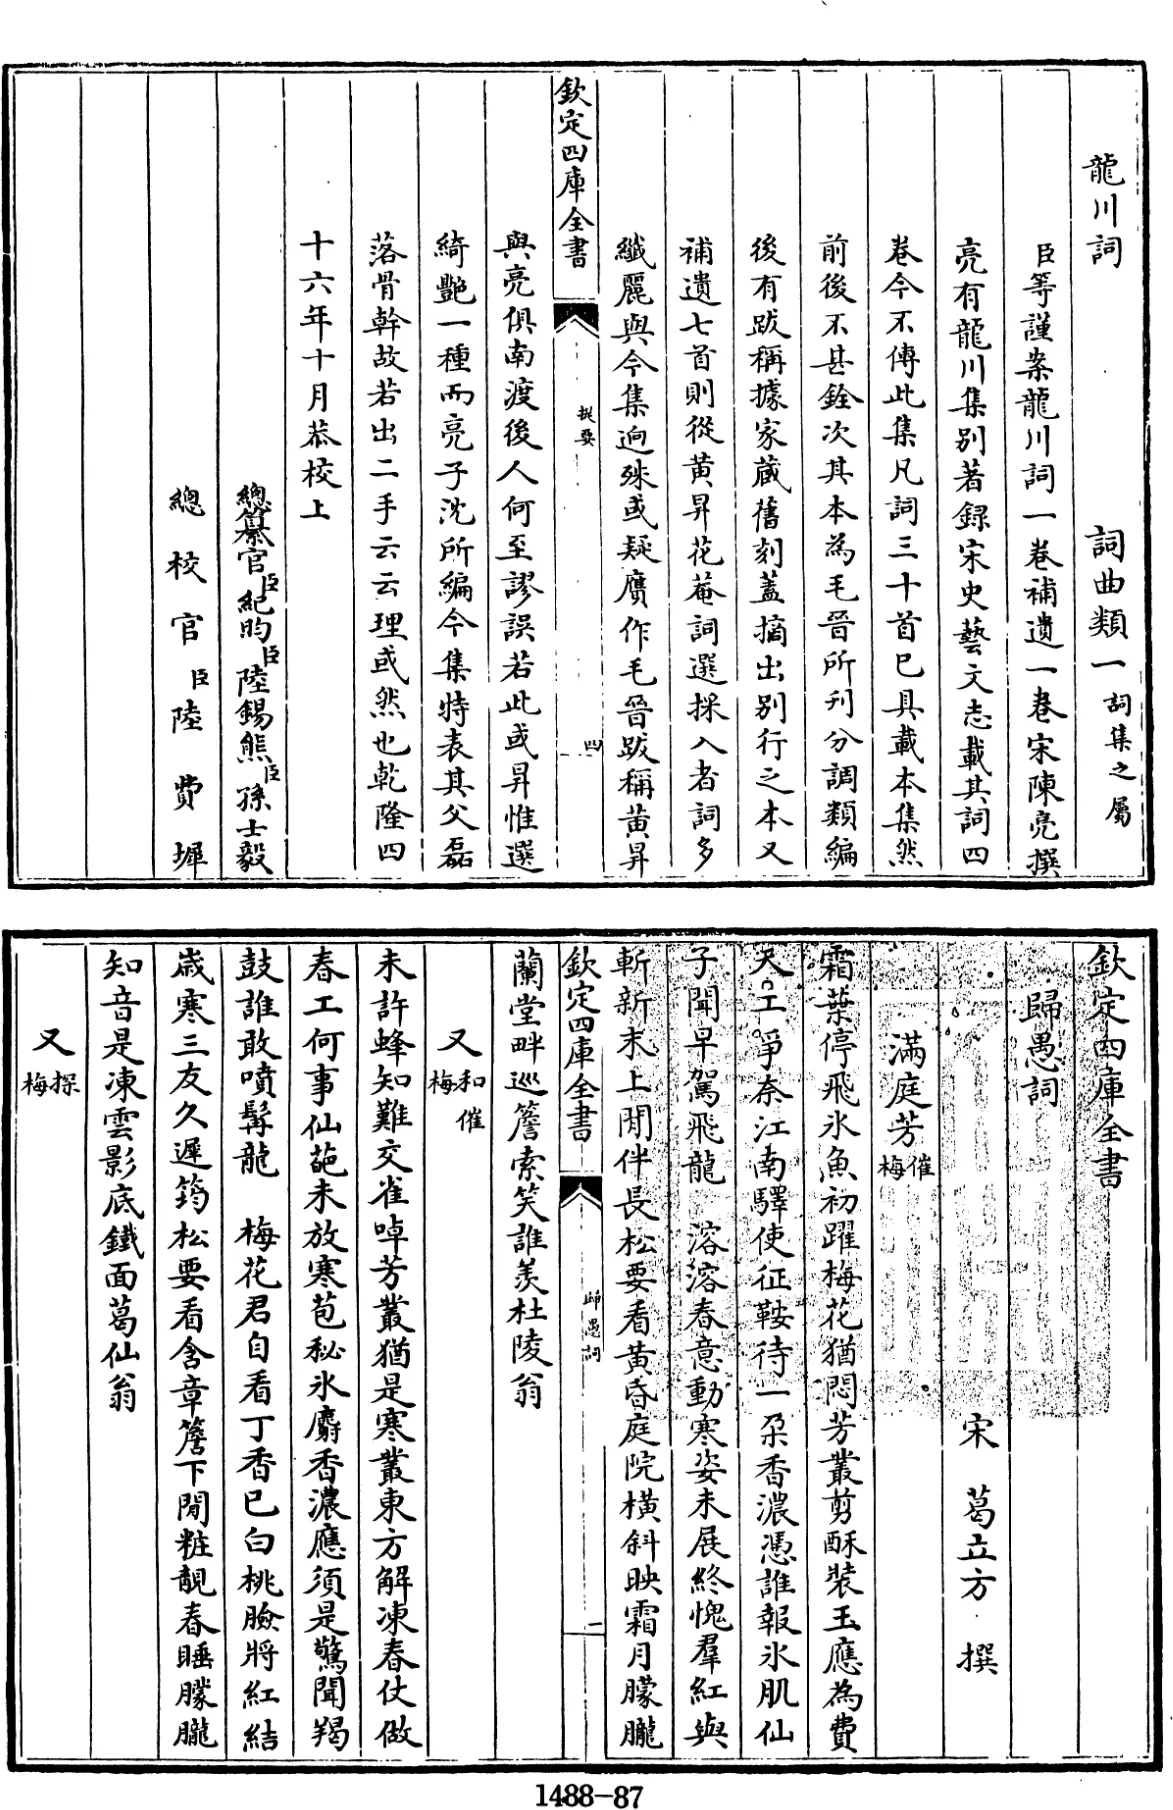 龍川詞　詞曲類一　詞集之屬
臣等謹案龍川詞一卷補遺一卷宋陳亮撰
亮有龍川集別著録宋史藝文志載其詞四
卷今不傳此集凡詞三十首已具載本集然
前後不甚銓次其本為毛晉所刋分調類編
後有跋稱據家蔵舊刻蓋摘出別行之本又
補遺七首則從黄昇花菴詞選採入者詞多
纎麗與今集迥殊或疑贋作毛晉跋稱黄昇
欽定四庫全書　提要　四
與亮俱南渡後人何至謬誤若此或昇惟選
綺艷一種而亮子沈所編今集特表其父磊
落骨幹故若出二手云云理或然也乾隆四
十六年十月恭校上
總纂官臣紀昀臣陸錫熊臣孫士毅
總校官臣陸費墀
欽定四庫全書
歸愚詞
宋　葛立方　撰
滿庭芳催梅
霜葉停飛氷魚初躍梅花猶悶芳叢剪酥裝玉應為費
天工爭奈江南驛使征鞍待一朶香濃憑誰報氷肌仙
子聞早駕飛龍　溶溶春意動寒姿未展終愧羣紅與
斬新末上閒伴長松要看黄昏庭院横斜映霜月朦朧
欽定四庫全書　歸愚詞　一
蘭堂畔巡簷索笑誰羨杜陵翁
又和催梅
未許蜂知難交雀啅芳叢猶是寒叢東方解凍春仗做
春工何事仙葩未放寒苞秘氷麝香濃應須是驚聞羯
鼓誰敢噴髯龍　梅花君自看丁香已白桃臉將紅結
歳寒三友久遲筠松要看含章簷下閒粧靚春睡朦朧
知音是凍雲影底鐵面葛仙翁
又探梅
1488-87